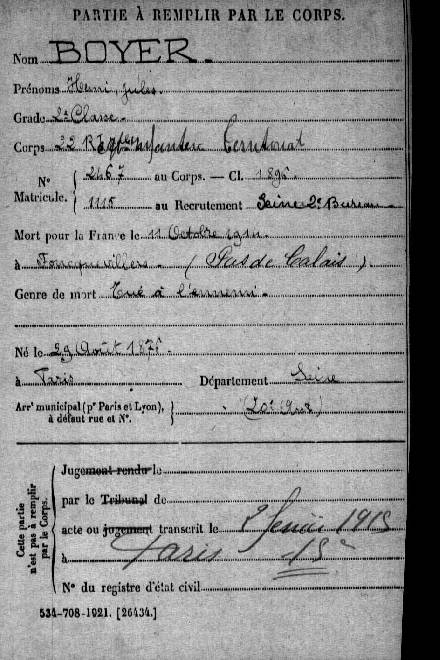 PARTIE À REMPLIR PAR LE CORPS.
Nom BOYER.
Prénoms Henri, Jules.
Grade 2e Classe.
Corps 22 Rég d'Infanterie Territorial
N° Matricule. { 2467 au Corps. — Cl. 1895
1115 au Recrutement Seine 2e Bureau
Mort pour la France le 11 Octobre 1914
à Foncquevillers (Pas de Calais).
Genre de mort Tué à l'ennemi.
Né le 29 Août 1875.
à Paris Département Seine
Arrt municipal (pr Paris et Lyon), à défaut rue et N°. } (20e Arrt)
Cette partie n'est pas à remplir par le Corps.
Jugement rendu le
par le Tribunal de
acte ou jugement transcrit le 2 1915
à Paris 15e
N° du registre d'état civil
534-708-1921. [26434.]